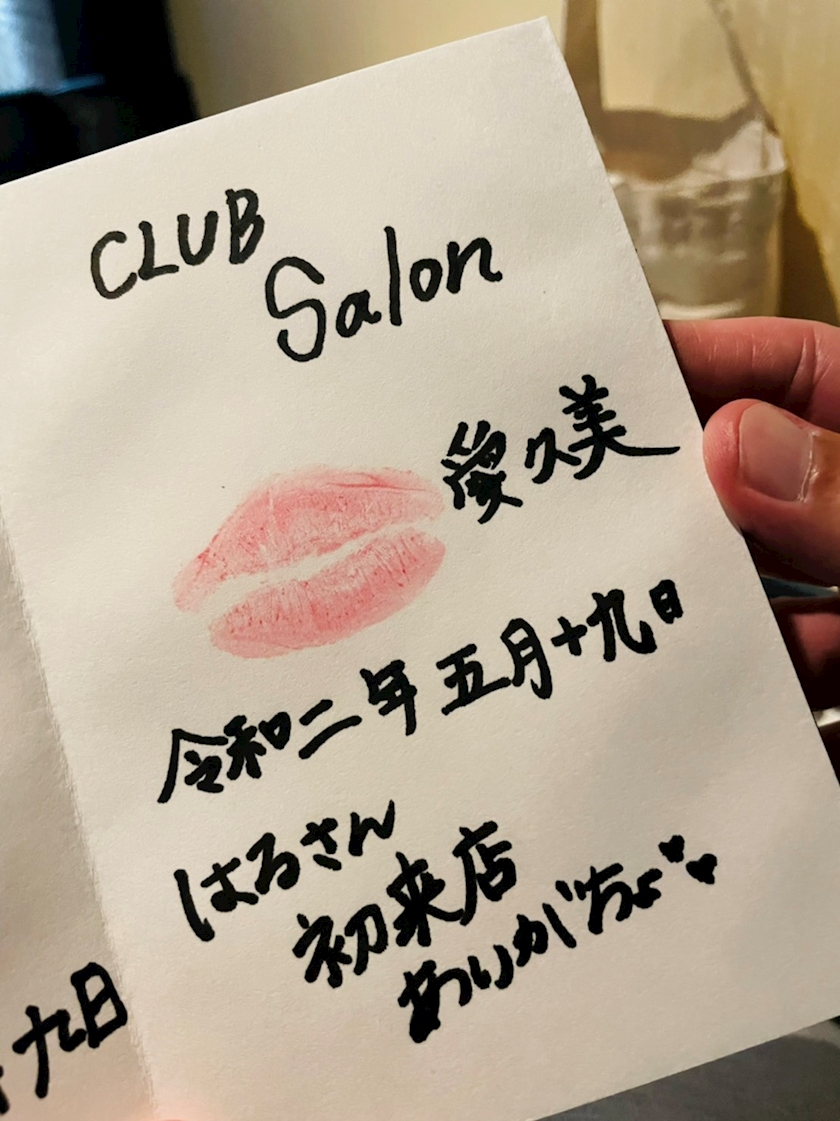 CLUB
Salon
愛久美
令和二年 五月十九日
はるさん
初来店
ありがちょ
九日